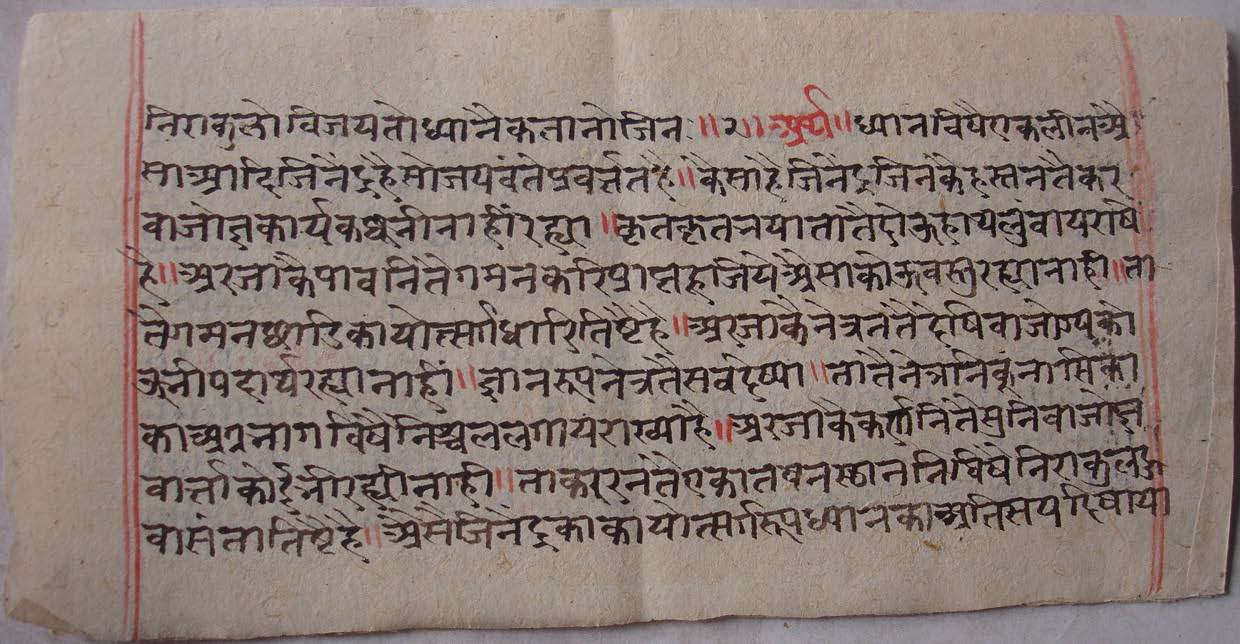 निराकुलो विजयतो ध्यानैकतानो जिन ॥२॥ अर्थ ॥ ध्यान विषै एक लीन अै
सा आदि जिनेंद्र है सो जयवंतै प्रवर्त्तत है ॥ कैसा है जिनेंद्र जिनकै हस्तनतै कर
वा जोग्य कार्य कछु नी नाही रह्या ॥ कृतकृत नया तातै दोऊ हाथ लुंबाय राषै
है ॥ अर जाकै पावनितै गमन करि प्राप्त हूजिये अैसा कोऊ वस्तु रह्या नाही ॥ ता
तै गमन छाडि कायोत्सर्ग धारि तिष्टै है ॥ अर जाकै नेत्रनतै देषिवा जोग्य को
ऊ नी पदार्थ रह्या नाही ॥ ज्ञानरूप नेत्रतै सर्व देष्या ॥ तातै नेत्रनिकू नासिका
का अग्र नाग विषै निश्चल लगाय राख्या है ॥ अर जाकै कर्णनितै सुनिवा जोग्य
वार्त्ता कोई नी रही नाही ॥ ता कारनतै एकांत षनस्थाननि विषै निराकुल हू
वा संता तिष्टै है ॥ अैसै जिनेंद्र का कायोत्सर्गरूप ध्यान का अतिसय दिषाया